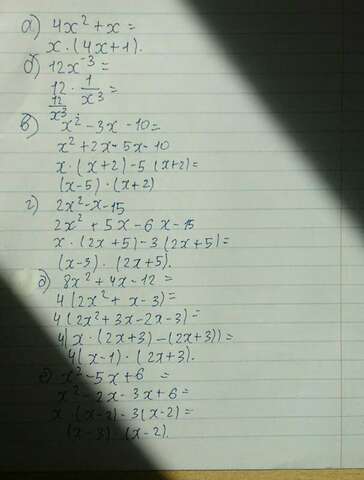 а) 4x² + x =
x · (4x+1).
б) 12x⁻³ =
12 · 1/x³ =
12/x³
в) x² - 3x - 10 =
x² + 2x - 5x - 10
x · (x+2) - 5 (x+2) =
(x-5) · (x+2)
г) 2x² - x - 15
2x² + 5x - 6x - 15
x · (2x+5) - 3 (2x+5) =
(x-3) · (2x+5).
д) 8x² + 4x - 12 =
4(2x² + x - 3) =
4(2x² + 3x - 2x - 3) =
4(x · (2x+3) - (2x+3)) =
4(x-1) · (2x+3).
е) x² - 5x + 6 =
x² - 2x - 3x + 6 =
x · (x-2) - 3(x-2) =
(x-3) · (x-2).